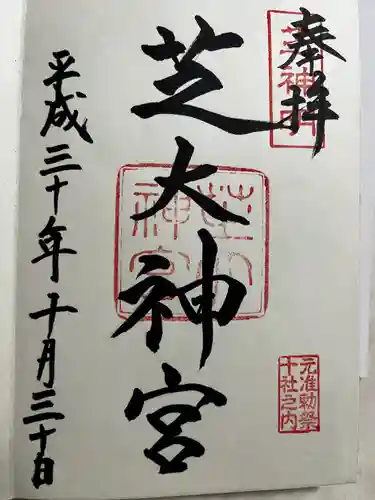 奉拝
芝大神宮
平成三十年十月三十日
芝神明
芝大神宮
元准勅祭
十社之内